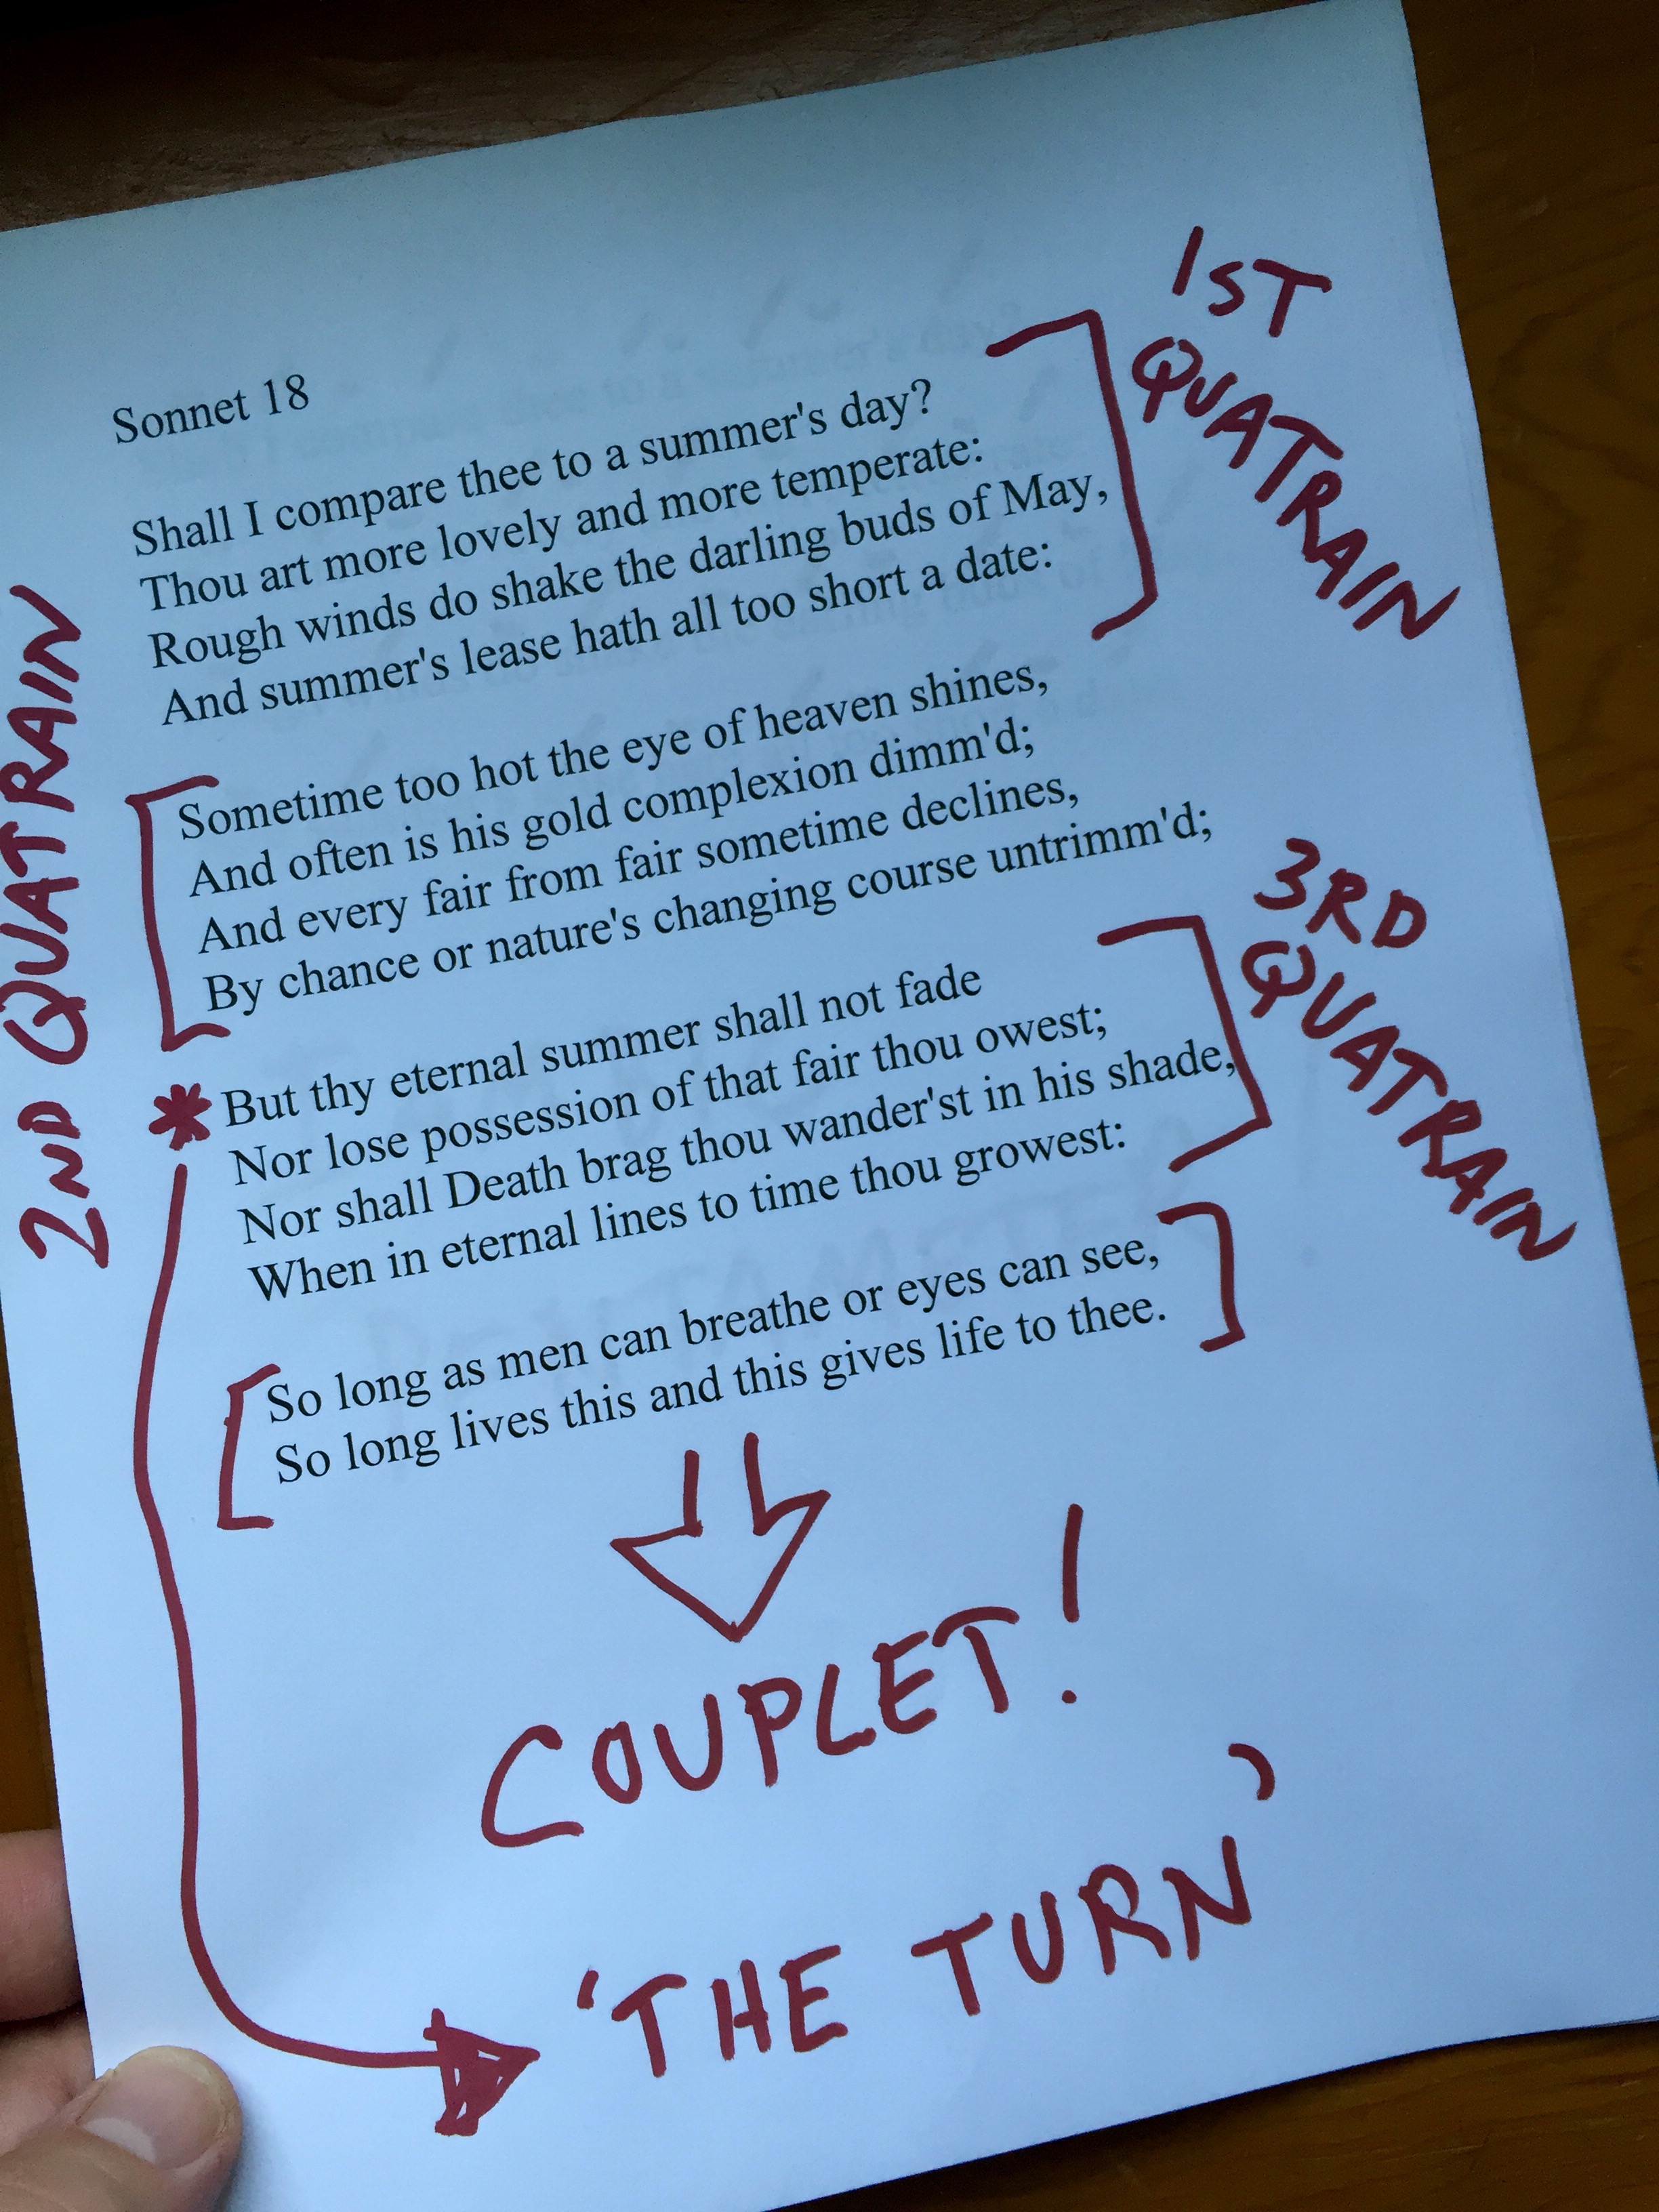 Sonnet 18
1ST
QUATRAIN
Shall I compare thee to a summer's day?
Thou art more lovely and more temperate:
Rough winds do shake the darling buds of May,
And summer's lease hath all too short a date:
2ND QUATRAIN
Sometime too hot the eye of heaven shines,
And often is his gold complexion dimm'd;
And every fair from fair sometime declines,
By chance or nature's changing course untrimm'd;
3RD
QUATRAIN
* But thy eternal summer shall not fade
Nor lose possession of that fair thou owest;
Nor shall Death brag thou wander'st in his shade,
When in eternal lines to time thou growest:
So long as men can breathe or eyes can see,
So long lives this and this gives life to thee.
COUPLET!
'THE TURN'